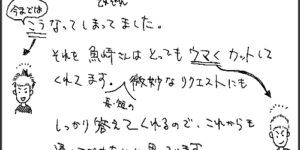 今までは
こうなってしまってました。
それを魚崎さんはとってもウマくカットして
くれてます。微妙なリクエストにも
しっかり答えてくれるので、これからも